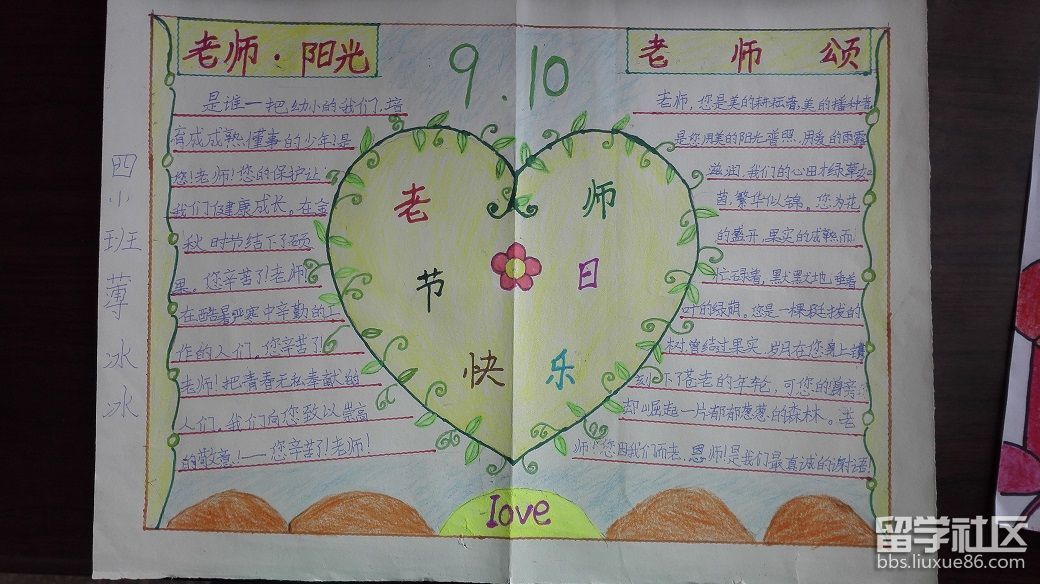 老师·阳光
9.10
老师颂
四小班薄冰冰
是谁一把幼小的我们,培
育成成熟懂事的少年!是
您!老师!您的保护让
我们健康成长。在金
秋时节结下了硕
果。您辛苦了!老师!
在酷暑严寒中辛勤的工
作的人们。您辛苦了!
老师!把青春无私奉献给
人们。我们向您致以崇高
的敬意!——您辛苦了!老师!
老师
节日
快乐
老师,您是美的耕耘者,美的播种者
是您用美的阳光普照,用爱的雨露
滋润,我们的心田才绿草如
茵,繁华似锦。您为花
的盛开,果实的成熟而
忙碌着,默默默地垂着
叶的绿荫。您是一棵挺拔的
树曾结过果实,岁月在您身上镌
刻下了苍老的年轮,可您的身旁
却崛起一片郁郁葱葱的森林。老
师!您因我们而老,恩师!是我们最真诚的谢语!
love
留学社区
bbs.liuxue86.com